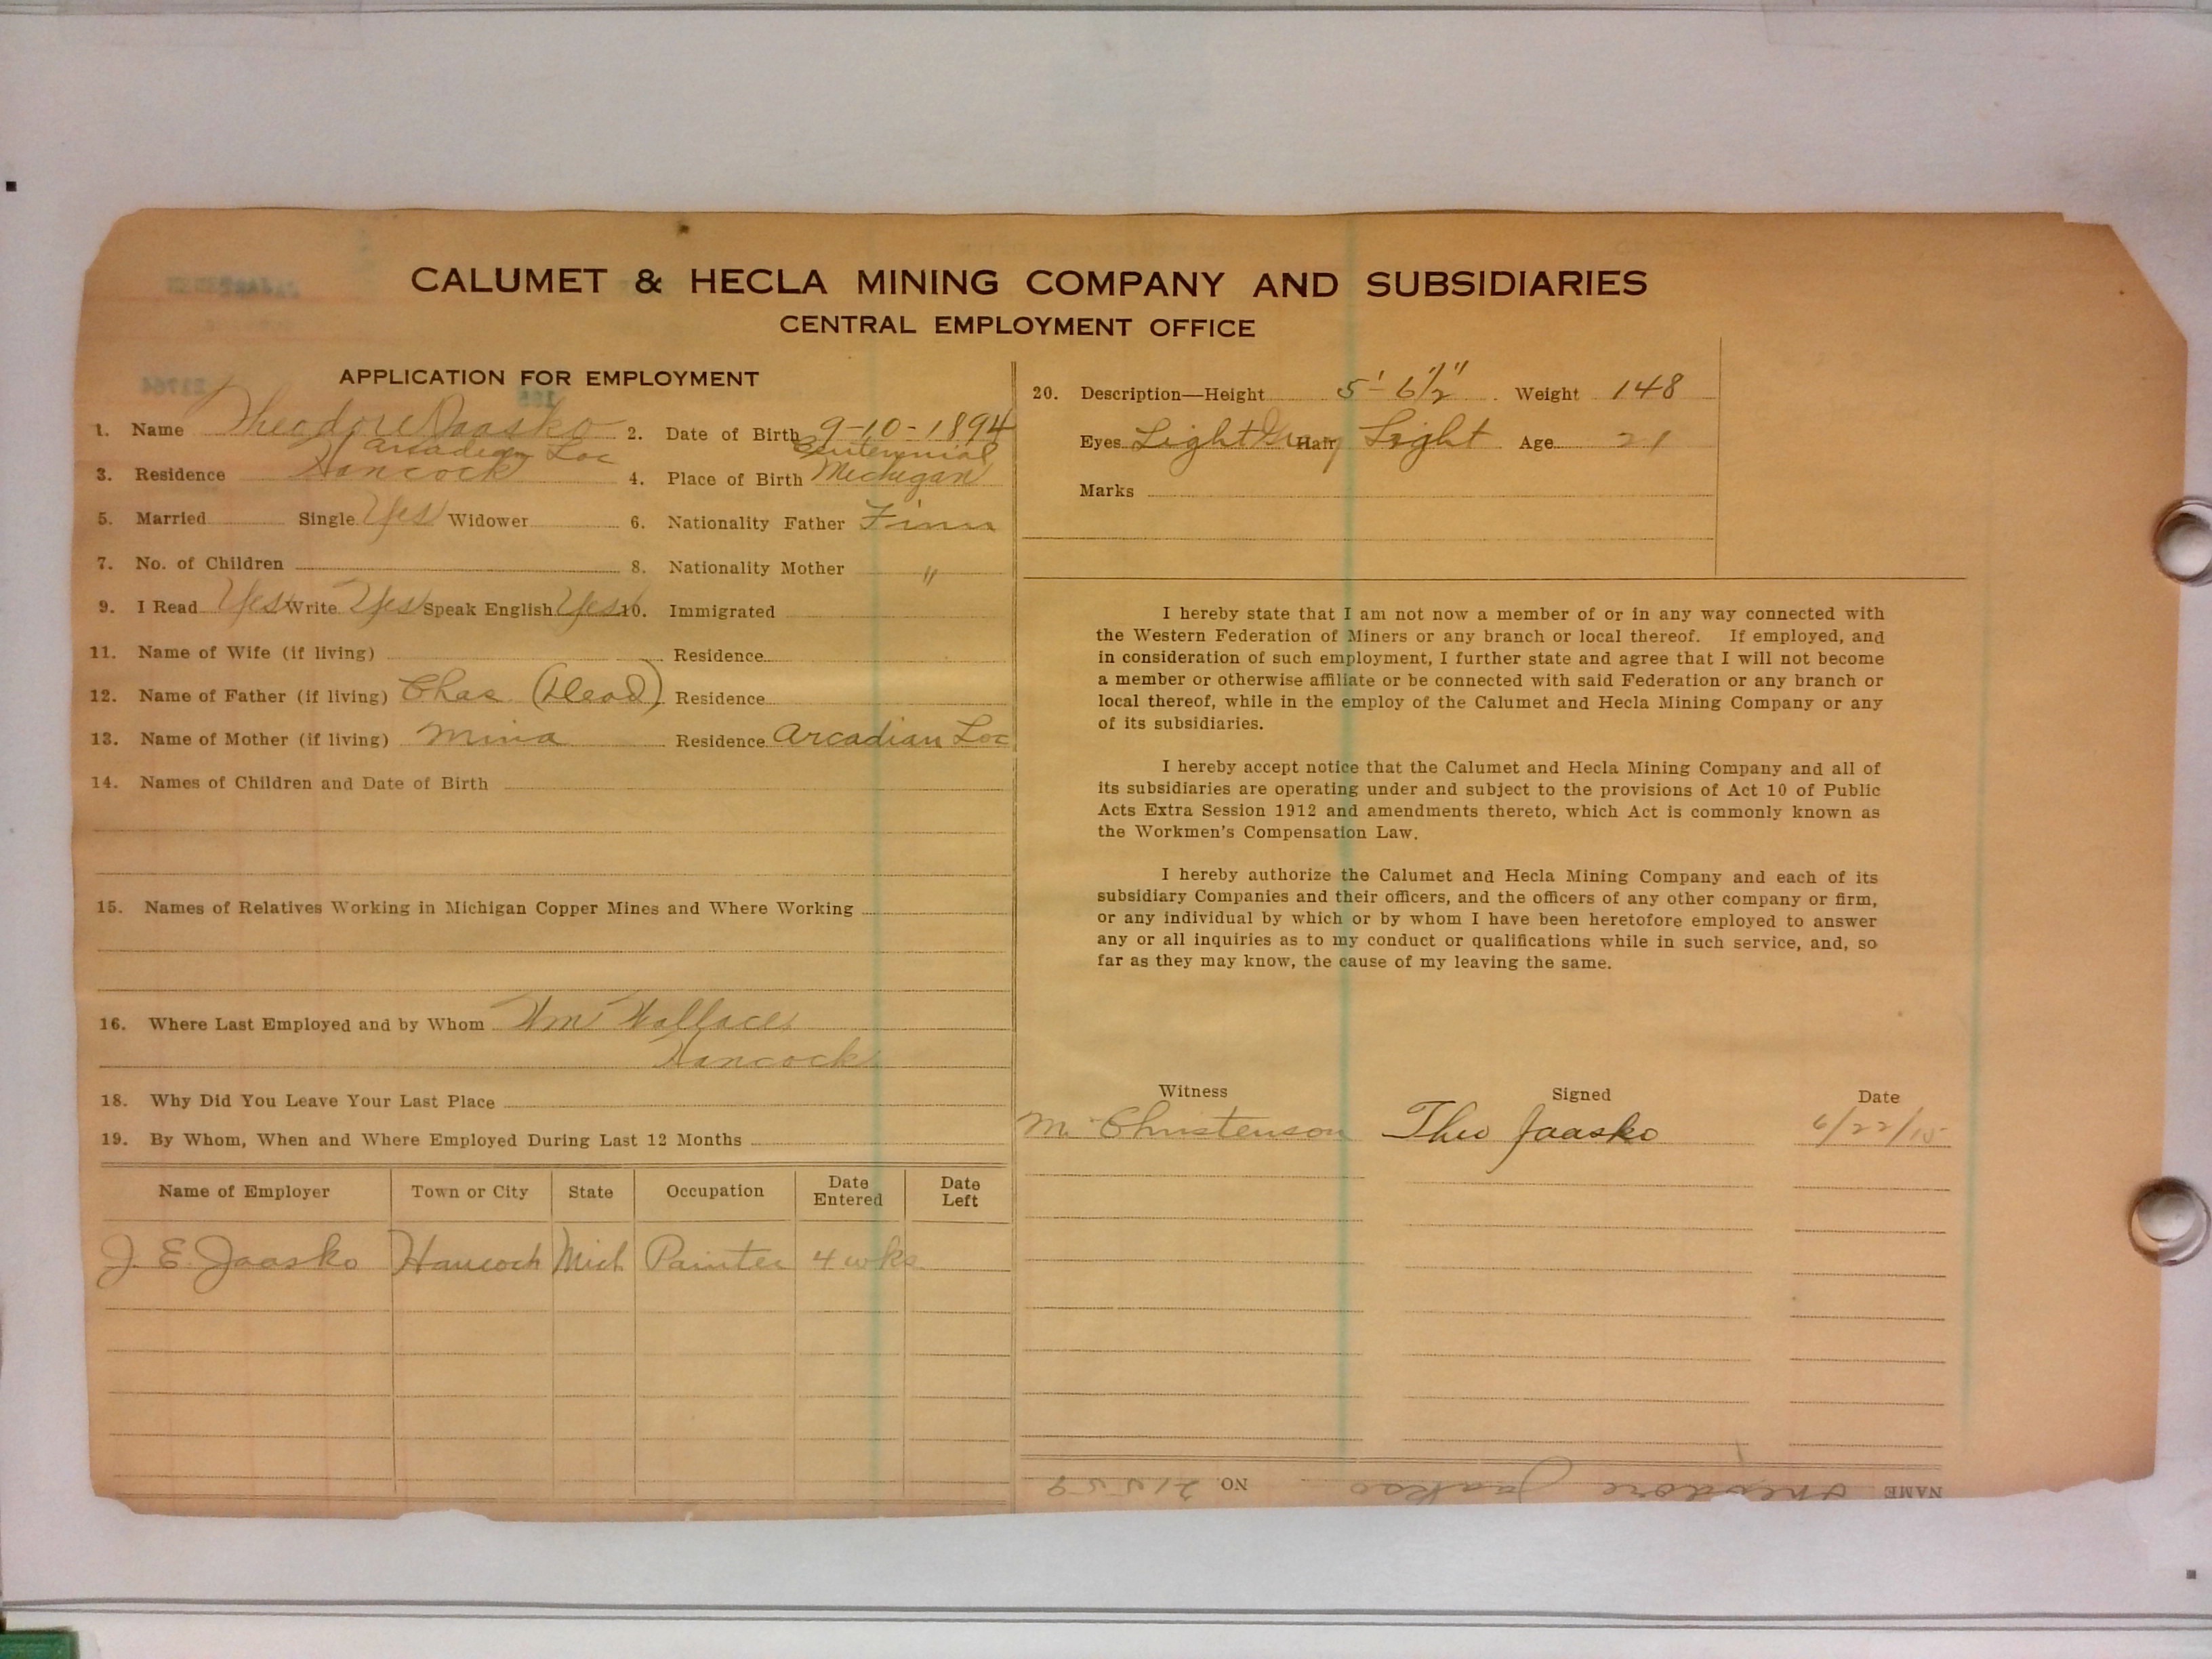 CALUMET & HECLA MINING COMPANY AND SUBSIDIARIES
CENTRAL EMPLOYMENT OFFICE
APPLICATION FOR EMPLOYMENT
1. Name Theodore Jaasko 2. Date of Birth 9-10-1894
Arcadian Loc Centennial
3. Residence Hancock 4. Place of Birth Michigan
5. Married Single Yes Widower 6. Nationality Father Finn
7. No. of Children 8. Nationality Mother "
9. I Read Yes Write Yes Speak English Yes 10. Immigrated
11. Name of Wife (if living) Residence
12. Name of Father (if living) Chas. (Dead) Residence
13. Name of Mother (if living) Mina Residence Arcadian Loc
14. Names of Children and Date of Birth
15. Names of Relatives Working in Michigan Copper Mines and Where Working
16. Where Last Employed and by Whom Wm Wallace
Hancock
18. Why Did You Leave Your Last Place
19. By Whom, When and Where Employed During Last 12 Months
Name of Employer Town or City State Occupation Date Entered Date Left
J. E. Jaasko Hancock Mich Painter 4 wks
20. Description—Height 5' 6½" Weight 148
Eyes Light Gray Hair Light Age 21
Marks
I hereby state that I am not now a member of or in any way connected with
the Western Federation of Miners or any branch or local thereof. If employed, and
in consideration of such employment, I further state and agree that I will not become
a member or otherwise affiliate or be connected with said Federation or any branch or
local thereof, while in the employ of the Calumet and Hecla Mining Company or any
of its subsidiaries.
I hereby accept notice that the Calumet and Hecla Mining Company and all of
its subsidiaries are operating under and subject to the provisions of Act 10 of Public
Acts Extra Session 1912 and amendments thereto, which Act is commonly known as
the Workmen's Compensation Law.
I hereby authorize the Calumet and Hecla Mining Company and each of its
subsidiary Companies and their officers, and the officers of any other company or firm,
or any individual by which or by whom I have been heretofore employed to answer
any or all inquiries as to my conduct or qualifications while in such service, and, so
far as they may know, the cause of my leaving the same.
Witness Signed Date
M. Christenson Theo Jaasko 6/22/15
NAME Theodore Jaakso NO.